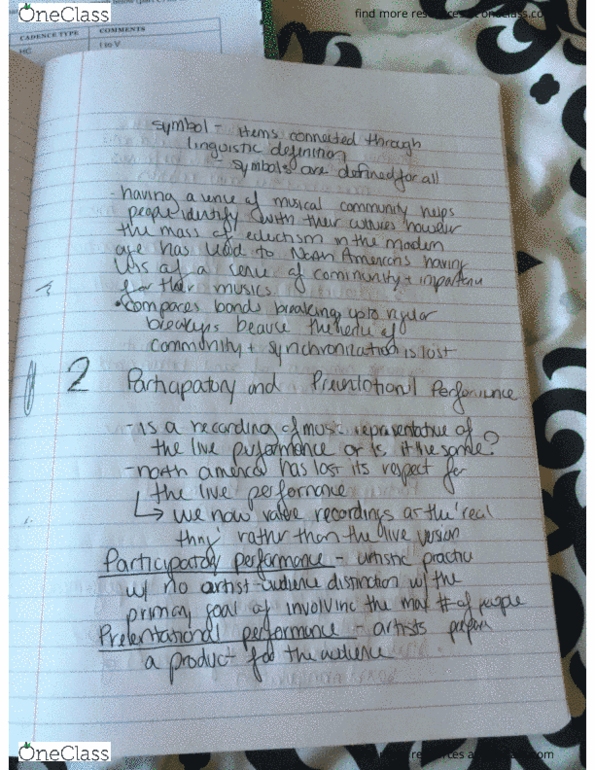 OneClass
find more resources at oneclass.com
CADENCE TYPE COMMENTS
HC I to V
symbol - items connected through
linguistic definition
- symbols are defined for all
- having a sense of musical community helps
people identify with their cultures however
the mass of eclectism in the modern
age has lead to North Americans having
less of a sense of community +
for their musics
• compares bands breaking up to regular
breakups because the sense of
community + synchronization is lost
2 Participatory and Presentational Performance
- is a recording of music representative of
the live performance or is it the same?
- north america has lost its respect for
the live performance
↳ we now value recordings as the 'real
thing' rather than the live version
Participatory performance - artistic practice
w/ no artist-audience distinction w/ the
primary goal of involving the max # of people
Presentational performance - artists prepare
a product for the audience
OneClass
resources at oneclass.com